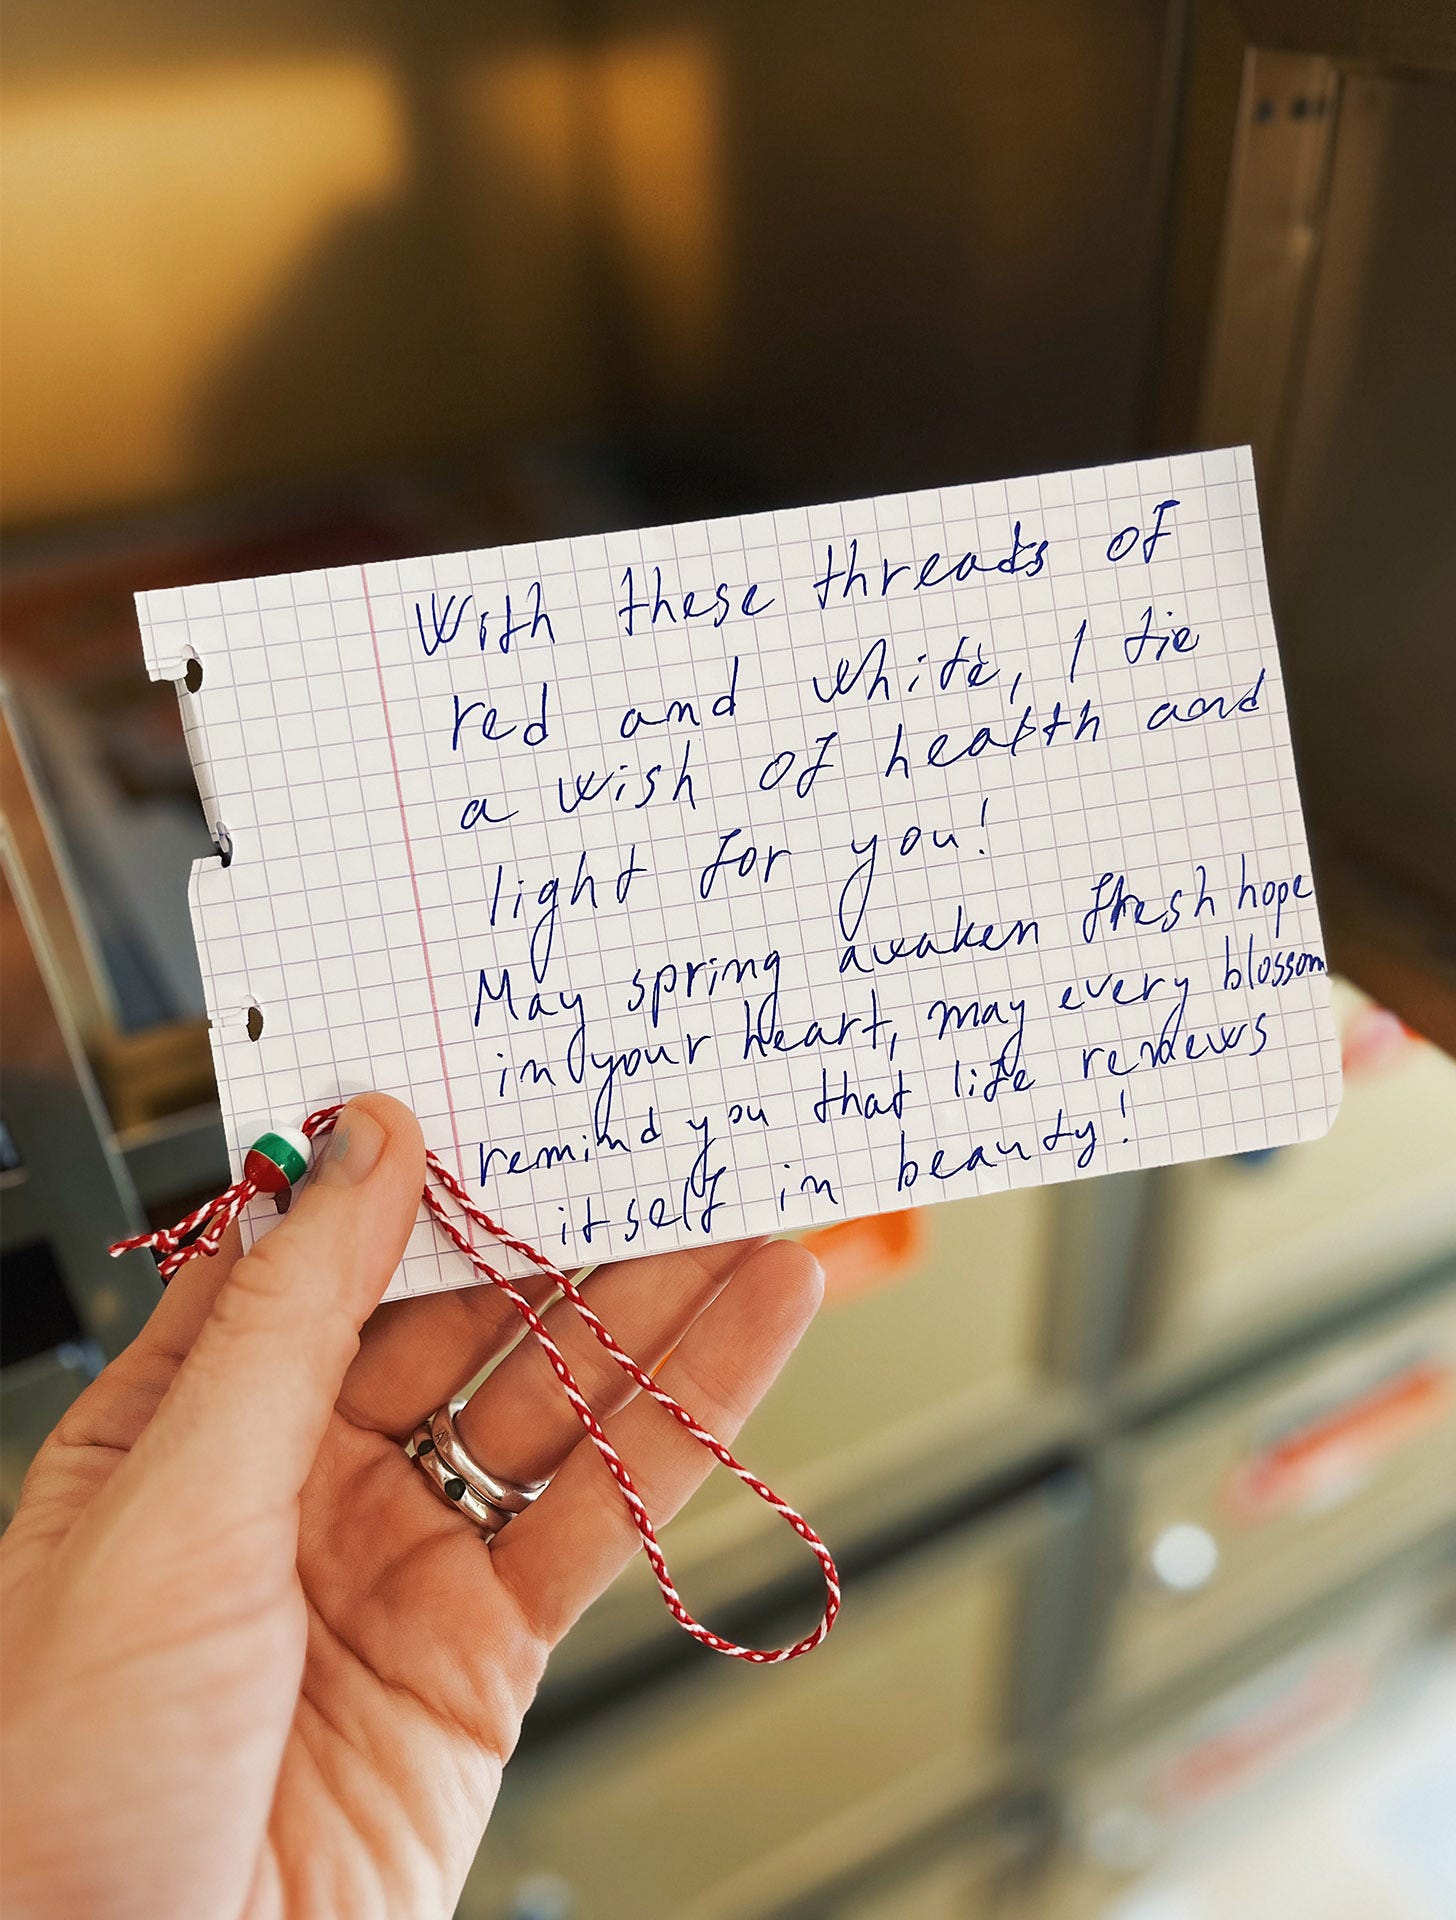 With these threads of
red and white, I tie
a wish of health and
light for you!
May spring awaken fresh hope
in your heart, may every blossom
remind you that life renews
itself in beauty!